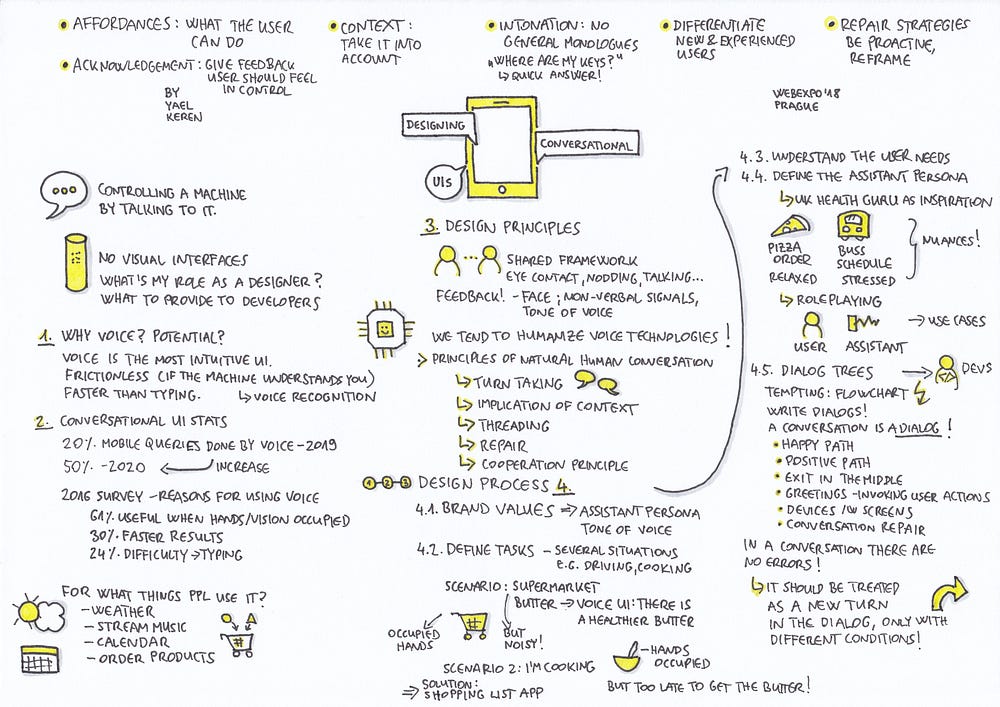 AFFORDANCES: WHAT THE USER
CAN DO
ACKNOWLEDGEMENT: GIVE FEEDBACK
USER SHOULD FEEL
IN CONTROL
BY
YAEL
KEREN
CONTEXT:
TAKE IT INTO
ACCOUNT
INTONATION: NO
GENERAL MONOLOGUES
"WHERE ARE MY KEYS?"
↳ QUICK ANSWER!
DIFFERENTIATE
NEW & EXPERIENCED
USERS
REPAIR STRATEGIES
BE PROACTIVE,
REFRAME
WEBEXPO '18
PRAGUE
DESIGNING
CONVERSATIONAL
UIS
CONTROLLING A MACHINE
BY TALKING TO IT.
NO VISUAL INTERFACES
WHAT'S MY ROLE AS A DESIGNER?
WHAT TO PROVIDE TO DEVELOPERS
1. WHY VOICE? POTENTIAL?
VOICE IS THE MOST INTUITIVE UI.
FRICTIONLESS (IF THE MACHINE UNDERSTANDS YOU)
FASTER THAN TYPING. ↳ VOICE RECOGNITION
2. CONVERSATIONAL UI STATS
20% MOBILE QUERIES DONE BY VOICE - 2019
50% - 2020 ← INCREASE
2016 SURVEY - REASONS FOR USING VOICE
61% USEFUL WHEN HANDS/VISION OCCUPIED
30% FASTER RESULTS
24% DIFFICULTY → TYPING
FOR WHAT THINGS PPL USE IT?
- WEATHER
- STREAM MUSIC
- CALENDAR
- ORDER PRODUCTS
3. DESIGN PRINCIPLES
SHARED FRAMEWORK
EYE CONTACT, NODDING, TALKING...
FEEDBACK! - FACE; NON-VERBAL SIGNALS,
TONE OF VOICE
WE TEND TO HUMANIZE VOICE TECHNOLOGIES!
> PRINCIPLES OF NATURAL HUMAN CONVERSATION
↳ TURN TAKING
↳ IMPLICATION OF CONTEXT
↳ THREADING
↳ REPAIR
↳ COOPERATION PRINCIPLE
1 2 3 DESIGN PROCESS 4.
4.1. BRAND VALUES ⇒ ASSISTANT PERSONA
TONE OF VOICE
4.2. DEFINE TASKS - SEVERAL SITUATIONS
E.G. DRIVING, COOKING
SCENARIO: SUPERMARKET
BUTTER → VOICE UI: THERE IS
A HEALTHIER BUTTER
OCCUPIED
HANDS
BUT
NOISY!
SCENARIO 2: I'M COOKING
- HANDS
OCCUPIED
⇒ SOLUTION:
SHOPPING LIST APP
BUT TOO LATE TO GET THE BUTTER!
4.3. UNDERSTAND THE USER NEEDS
4.4. DEFINE THE ASSISTANT PERSONA
↳ UK HEALTH GURU AS INSPIRATION
PIZZA
ORDER
RELAXED
BUSS
SCHEDULE
STRESSED
NUANCES!
↳ ROLEPLAYING
USER
ASSISTANT
→ USE CASES
4.5. DIALOG TREES → DEVS
TEMPTING: FLOWCHART
WRITE DIALOGS!
A CONVERSATION IS A DIALOG!
• HAPPY PATH
• POSITIVE PATH
• EXIT IN THE MIDDLE
• GREETINGS - INVOKING USER ACTIONS
• DEVICES /W SCREENS
• CONVERSATION REPAIR
IN A CONVERSATION THERE ARE
NO ERRORS!
↳ IT SHOULD BE TREATED
AS A NEW TURN
IN THE DIALOG, ONLY WITH
DIFFERENT CONDITIONS!